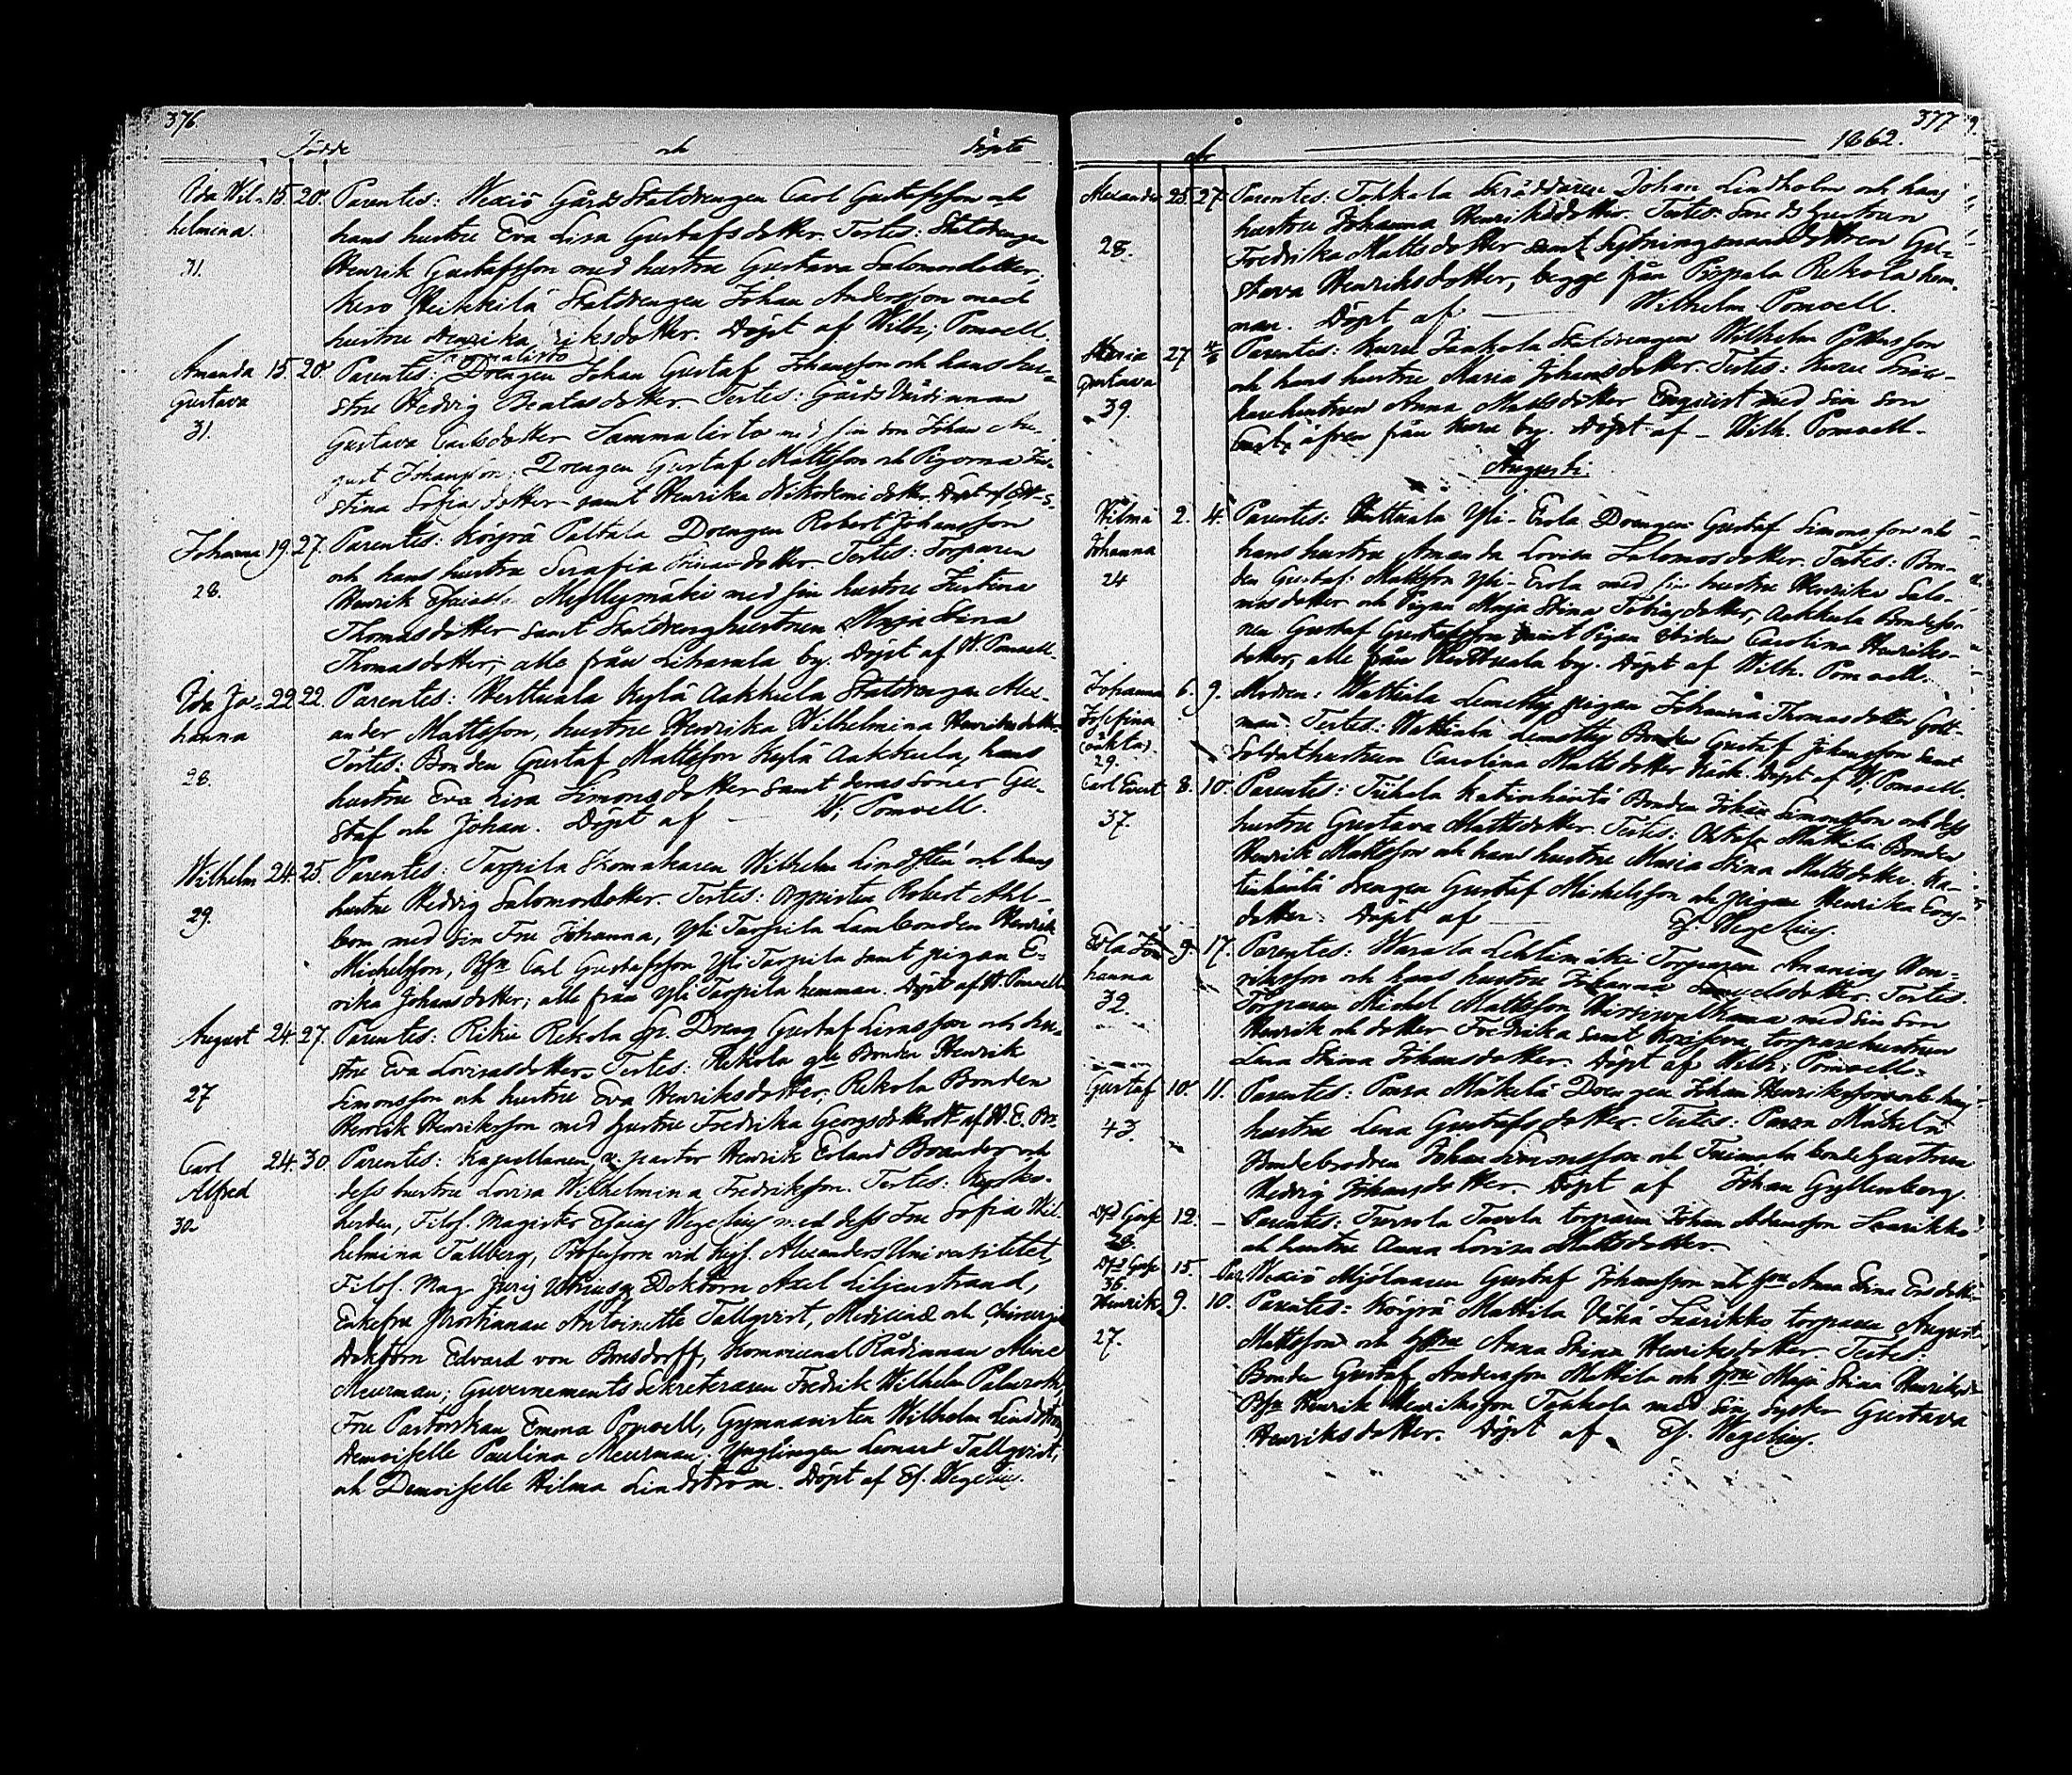 376.
Födde och döpte
Ida Wil- 15. 20. Parentes: Wexiö Gårds Statdrengen Carl Gustafsson och
helmina. hans hustru Eva Lisa Gustafsdotter. Testes: Statdrengen
31. Henrik Gustafsson med hustru Gustava Salomonsdotter,
Kero Heikkilä Statdrengen Johan Andersson med
hustru Henrika Eriksdotter. Döpt af Wilh; Pomoell.
Sammalisto
Amanda 15. 20. Parentes: Drengen Johan Gustaf Johansson och hans hu-
Gustava stru Hedvig Beatasdotter. Testes: Gårds Värdinnan
31. Gustava Carlsdotter Sammalisto med sin son Johan Au-
gust Johansson; Drengen Gustaf Mattsson och Pigorna Ju-
stina Sofiasdotter samt Henrika Nikodemidotter. Döpt af
Johanna 19. 27. Parentes: Köyrä Paltala Drengen Robert Johansson
och hans hustru Serafia dotter. Testes: Torparen
28. Henrik Myllymäki med sin hustru Justina
Thomasdotter samt Statdrenghustrun Maja Stina
Thomasdotter; alle från Liharala by. Döpt af W. Pomoell.
Ida Jo- 22. 22. Parentes: Herttuala Kylä Aakkula Statdrengen Alex-
hanna ander Mattsson, hustru Henrika Wilhelmina Henriksdotter.
Testes: Bonden Gustaf Mattsson Kylä Aakkula, hans
28. hustru Eva Lisa Simonsdotter samt deras Söner Gu-
staf och Johan. Döpt af W; Pomoell.
Wilhelm 24. 25. Parentes: Tarpila Skomakaren Wilhelm Lindstén och hans
hustru Hedvig Salomonsdotter. Testes: Orgvisten Robert Ahl-
29. bom med sin Fru Johanna, Yli Tarpila Lambonden Henrik
Michelsson, Bssn Carl Gustafsson Yli Tarpila samt pigan E-
rika Johansdotter; alle från Yli Tarpila hemman. Döpt af W. Pomoell
August 24. 27. Parentes: Riku Rekola Dreng Gustaf Simsson och hu-
stru Eva Lovisasdotter. Testes: Rekola gle Bonden Henrik
27 Simonsson och hustru Eva Henriksdotter; Rekola Bonden
Henrik Henriksson med hustru Fredrika Georgsdotter. af H. E. Br.
Carl 24. 30. Parentes: Kapellanen v. pastor Henrik Erland Brander och
Alfred dess hustru Lovisa Wilhelmina Fredriksson. Testes: Kyrko-
30 herden, Filos. Magister Esaias Wegelius med dess Fru Sofia Wil-
helmina Tallberg, Professorn vid Kejs. Alexanders Universitetet,
Filos. Mag. Juris Utriusq Doktorn Axel Liljenstrand,
Enkefru Prostinnan Antoinette Tallqvist, Medicine och Chirurgie
Doktorn Edvard von Bonsdorff, Kommunal Rådinnan Mine
Meurman; Guvernements Sekreteraren Fredrik Wilhelm Palmroth,
Fru Pastorskan Emma Pomoell, Gymnasisten Wilhelm Lindström,
Demoiselle Paulina Meurman; Ynglingen Leonard Tallqvist,
och Demoiselle Hilma Lindström. Döpt af Es. Wegelius.
377
år 1862.
Alexander 25. 27. Parentes: Tokkola Skräddaren Johan Lindholm och hans
hustru Johanna Henriksdotter. Testes: hustrun
28. Fredrika Mattsdotter samt Sytningsmansdottren Gu-
stava Henriksdotter, begge från Pispala Rekola hem-
man. Döpt af Wilhelm Pomoell.
Maria 27. 4/8 Parentes: Kuru Jaakola Statdrengen Wilhelm
Gustava och hans hustru Maria Johansdotter. Testes: Kuru
39. Anna Mattsdotter Enqvist med sin son
Gust: äfven från Kuru by. Döpt af Wilh. Pomoell.
Augusti.
Hilma 2. 4. Parentes: Huttuala Yli-Erola Drengen Gustaf Simonsson och
Johanna hans hustru Amanda Lovisa Salomosdotter. Testes: Bon-
24 den Gustaf Mattsson Yli-Erola med sin hustru Henrika Salo-
mosdotter och Pigan Maja Stina Tobiasdotter, Aakkula Bondesso-
nen Gustaf Gustafsson samt Pigan Carolina Henriks-
dotter, alle från Huttuala by. Döpt af Wilh. Pomoell.
Johanna 6. 9. Modren: Wattiala Lemetty pigan Johanna Thomasdotter Gott-
Josefina man. Testes: Wattiala Lemetty Bonden Gustaf Johansson samt
(oäkta) Soldathustrun Carolina Mattsdotter Räck. Döpt af W; Pomoell.
29.
Carl Evert 8. 10. Parentes: Tiihala Katinhäntä Bonden Johan Simonsson och dess
37. hustru Gustava Mattsdotter. Testes: Mattila Bonden
Henrik Mattsson och hans hustru Maria Stina Mattsdotter. Ka-
tinhäntä drengen Gustaf Michelsson och pigan Henrika Georgs-
dotter. Döpt af Es. Wegelius.
Edla Jo- 9. 17. Parentes: Warala Lehtimäki Torparen Ananias Hen-
hanna riksson och hans hustru Johanna Samuelsdotter. Testes.
32. Torparen Michel Mattsson med sin son
Henrik och dotter Fredrika samt torparehustrun
Lena Stina Johansdotter. Döpt af Wilh; Pomoell.
Gustaf 10. 11. Parentes: Pansa Mäkelä Drengen Johan Henriksson och hans
43. hustru Lena Gustafsdotter. Testes: Pansa Mäkelä
Bondebrodren Johan Simonsson och Tuimala bondehustrun
Hedvig Johansdotter. Döpt af Johan Gyllenberg.
Dfd Gosse 12. — Parentes: Tursola Tavela torparen Johan Adamsson Laarikko
28. och hustru Anna Lovisa Mattsdotter.
Dfd Gosse 15. Par. Wexiö Mjölnaren Gustaf Johansson och hru Anna Stina
35.
Henrik 9. 10. Parentes: Köyrä Mattila Vähä Laarikko torparen August
27. Mattsson och hru Anna Stina Henriksdotter. Testes.
Bonden Gustaf Andersson Mattila och hru Maja Stina Henriksd
Bssn Henrik Henriksson Tokkola med sin syster Gustava
Henriksdotter. Döpt af Es. Wegelius.